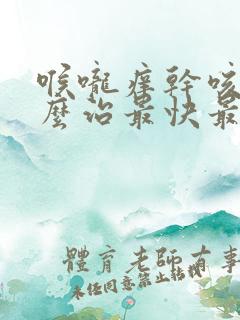 喉嚨癢幹咳
麼治最快最
體育老師有事
未經同意禁止轉載